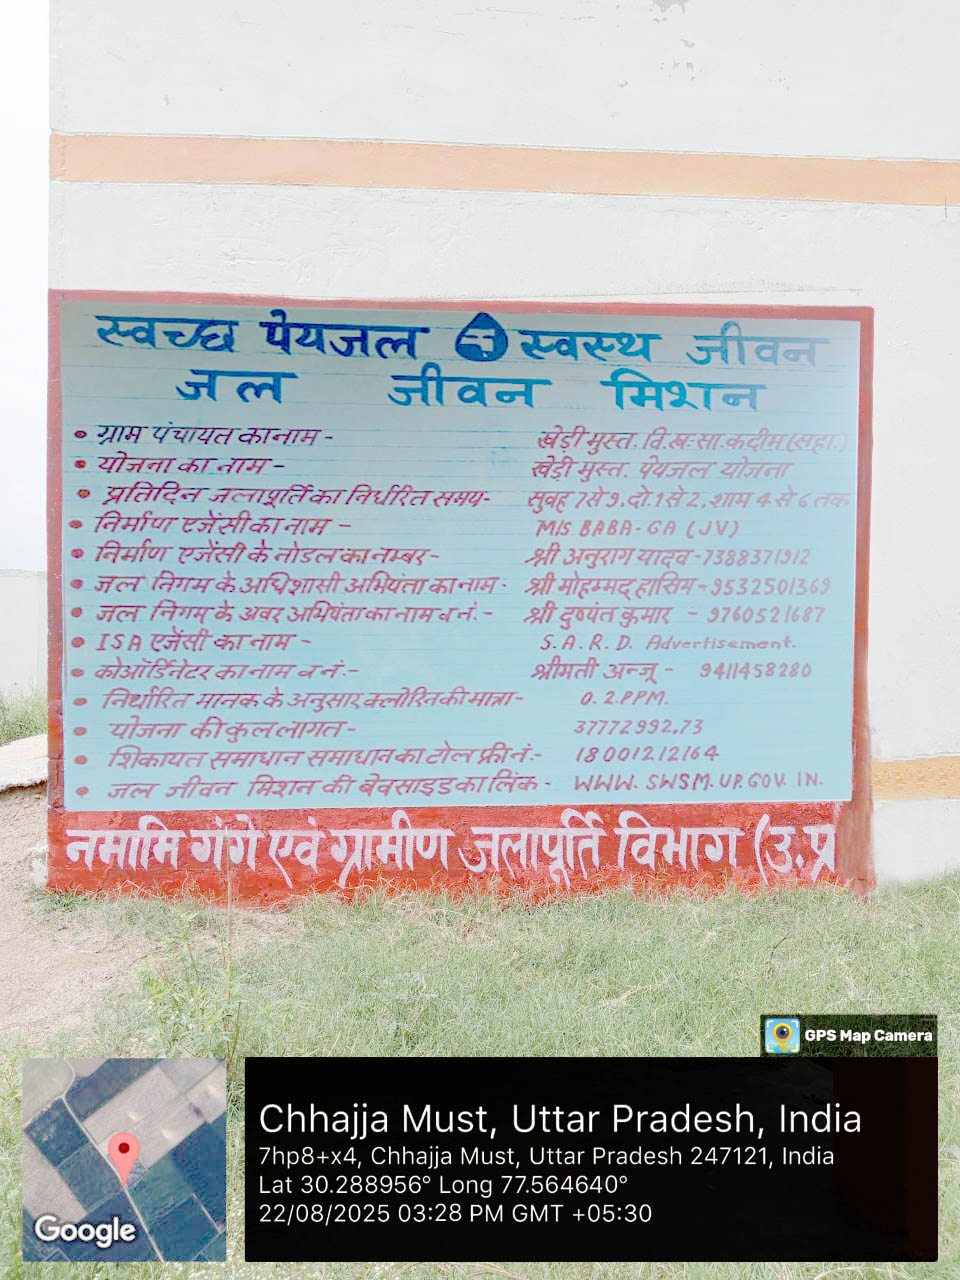 स्वच्छ पेयजल स्वस्थ जीवन
जल जीवन मिशन
• ग्राम पंचायत का नाम - खेड़ी मुस्त. वि.ख:सा.कदीम(सहा.)
• योजना का नाम - खेड़ी मुस्त. पेयजल योजना
• प्रतिदिन जलापूर्ति का निर्धारित समय- सुवह 7 से 9. दो. 1 से 2, शाम 4 से 6 तक
• निर्माण एजेंसी का नाम - M/S BABA-GA (JV)
• निर्माण एजेंसी के नोडल का नम्बर- श्री अनुराग यादव-7388371912
• जल निगम के अधिशासी अभियंता का नाम- श्री मोहम्मद हासिम-9532501369
• जल निगम के अवर अभियंता का नाम व नं.- श्री दुष्यंत कुमार - 9760521687
• ISA एजेंसी का नाम - S.A.R.D. Advertisement.
• कोऑर्डिनेटर का नाम व नं.- श्रीमती अन्जू - 9411458280
• निर्धारित मानक के अनुसार क्लोरिन की मात्रा- 0.2.PPM.
• योजना की कुल लागत- 37772992.73
• शिकायत समाधान समाधान का टोल फ्री नं.- 18001212164
• जल जीवन मिशन की बेवसाइड का लिंक- WWW.SWSM.UP.GOV.IN.
नमामि गंगे एवं ग्रामीण जलापूर्ति विभाग (उ.प्र
GPS Map Camera
Chhajja Must, Uttar Pradesh, India
7hp8+x4, Chhajja Must, Uttar Pradesh 247121, India
Lat 30.288956° Long 77.564640°
22/08/2025 03:28 PM GMT +05:30
Google